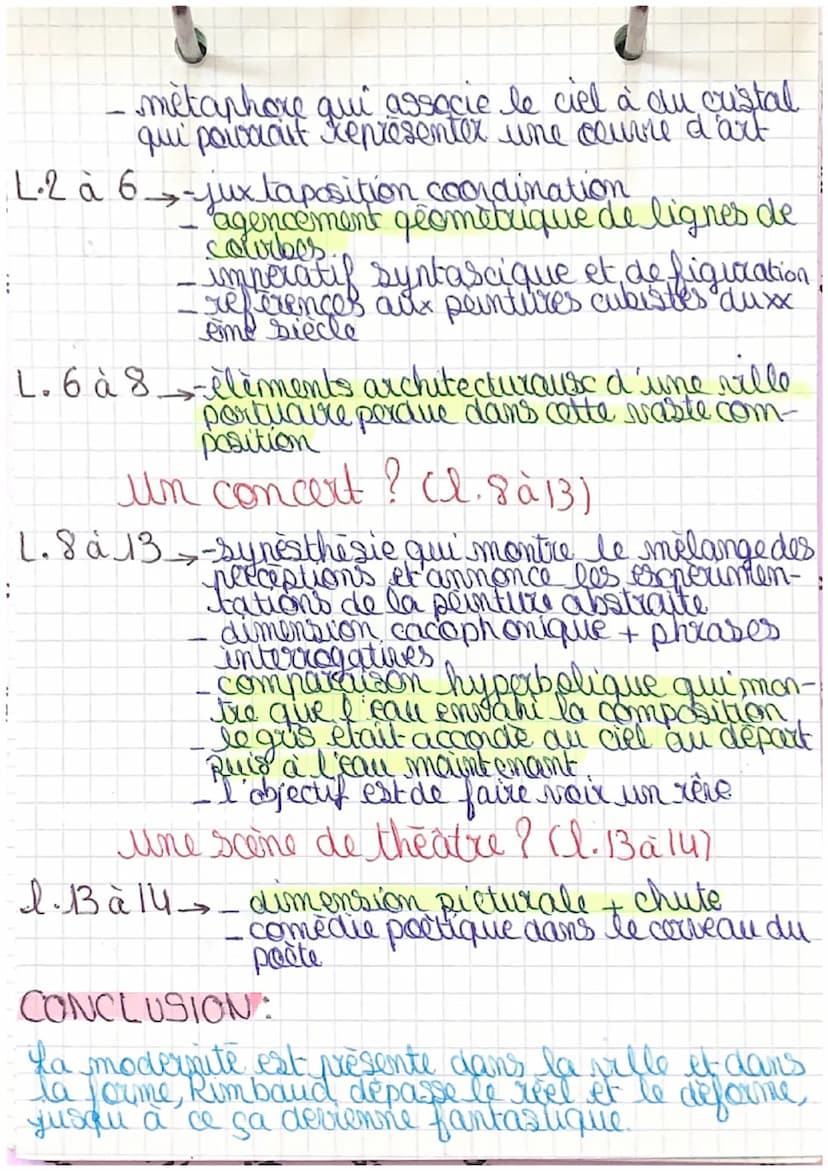 - métaphore qui associe le ciel à du cristal
qui pourrait représenter une œuvre d'art
L.2 à 6 → - juxtaposition coordination
- agencement géométrique de lignes de
courbes.
- impératif syntascique et défiguration
- références aux peintures cubistes du xx
ème siècle
L. 6 à 8 → - éléments architecturausc d'une ville
portuaire perdue dans cette vaste com-
position
Un concert ? (l. 8 à 13)
L. 8 à 13 → - synésthésie qui montre le mélange des
perceptions et annonce les escpérimen-
tations de la peinture abstraite
- dimension cacophonique + phrases
interrogatives
- comparaison hyperbolique qui mon-
tre que l'eau envahi la composition
- le gris était accordé au ciel au départ
puis à l'eau maintenant
- l'objectif est de faire voir un rêve
Une scène de théâtre ? (l. 13 à 14)
l. 13 à 14 → - dimension picturale + chute
- comédie poètique dans le cerveau du
poète
CONCLUSION :
La modernité est présente dans la ville et dans
la forme, Rimbaud dépasse le réel et le déforme,
jusqu'à ce ça devienne fantastique.